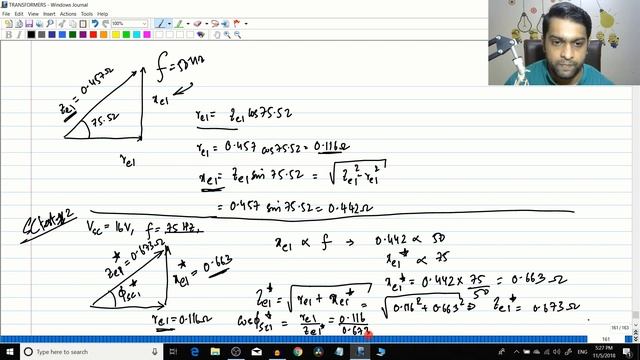 TRANSFORMERS - Windows Journal
File Edit View Insert Actions Tools Help
100%
f = 50 Hz
Ze1 = 0.457Ω
xe1
75.52
re1
re1 = Ze1 cos 75.52
re1 = 0.457 cos 75.52 = 0.116Ω
xe1 = Ze1 sin 75.52 = √(Ze1² - re1²)
= 0.457 sin 75.52 = 0.442Ω
SC test-2
Vsc = 16V, f = 75 Hz,
Ze1* = 0.673Ω
xe1* = 0.663
ϕsc1*
re1 = 0.116Ω
xe1 ∝ f → 0.442 ∝ 50
xe1* ∝ 75
xe1* = 0.442 × 75/50 = 0.663 Ω
Ze1* = √(re1 + xe1*) = √(0.116² + 0.663²) ⇒ Ze1* = 0.673Ω
cosϕsc1* = re1/Ze1* = 0.116/0.673
161 / 163
161
Type here to search
5:27 PM
11/5/2018